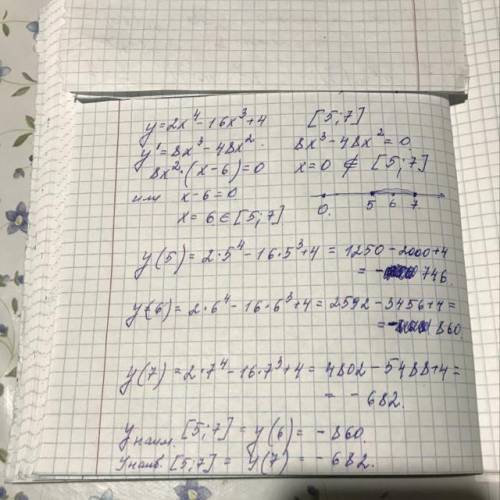 y = 2x⁴ - 16x³ + 4 [5;7]
y' = 8x³ - 48x². 8x³ - 48x² = 0
8x² · (x - 6) = 0 x = 0 ∉ [5;7]
или x - 6 = 0
x = 6 ∈ [5;7] 0. 5 6 7
y(5) = 2·5⁴ - 16·5³ + 4 = 1250 - 2000 + 4
= - 746.
y(6) = 2·6⁴ - 16·6³ + 4 = 2592 - 3456 + 4 =
= - 860.
y(7) = 2·7⁴ - 16·7³ + 4 = 4802 - 5488 + 4 =
= - 682.
y наим. [5;7] = y(6) = - 860.
y наиб. [5;7] = y(7) = - 682.